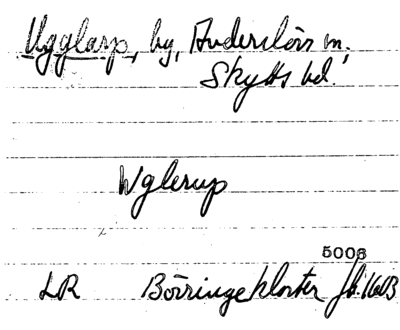 Ugglarp, by, Anderslövs sn,
Skytts hd.
Wglerup
5006
LR Börringekloster jb.